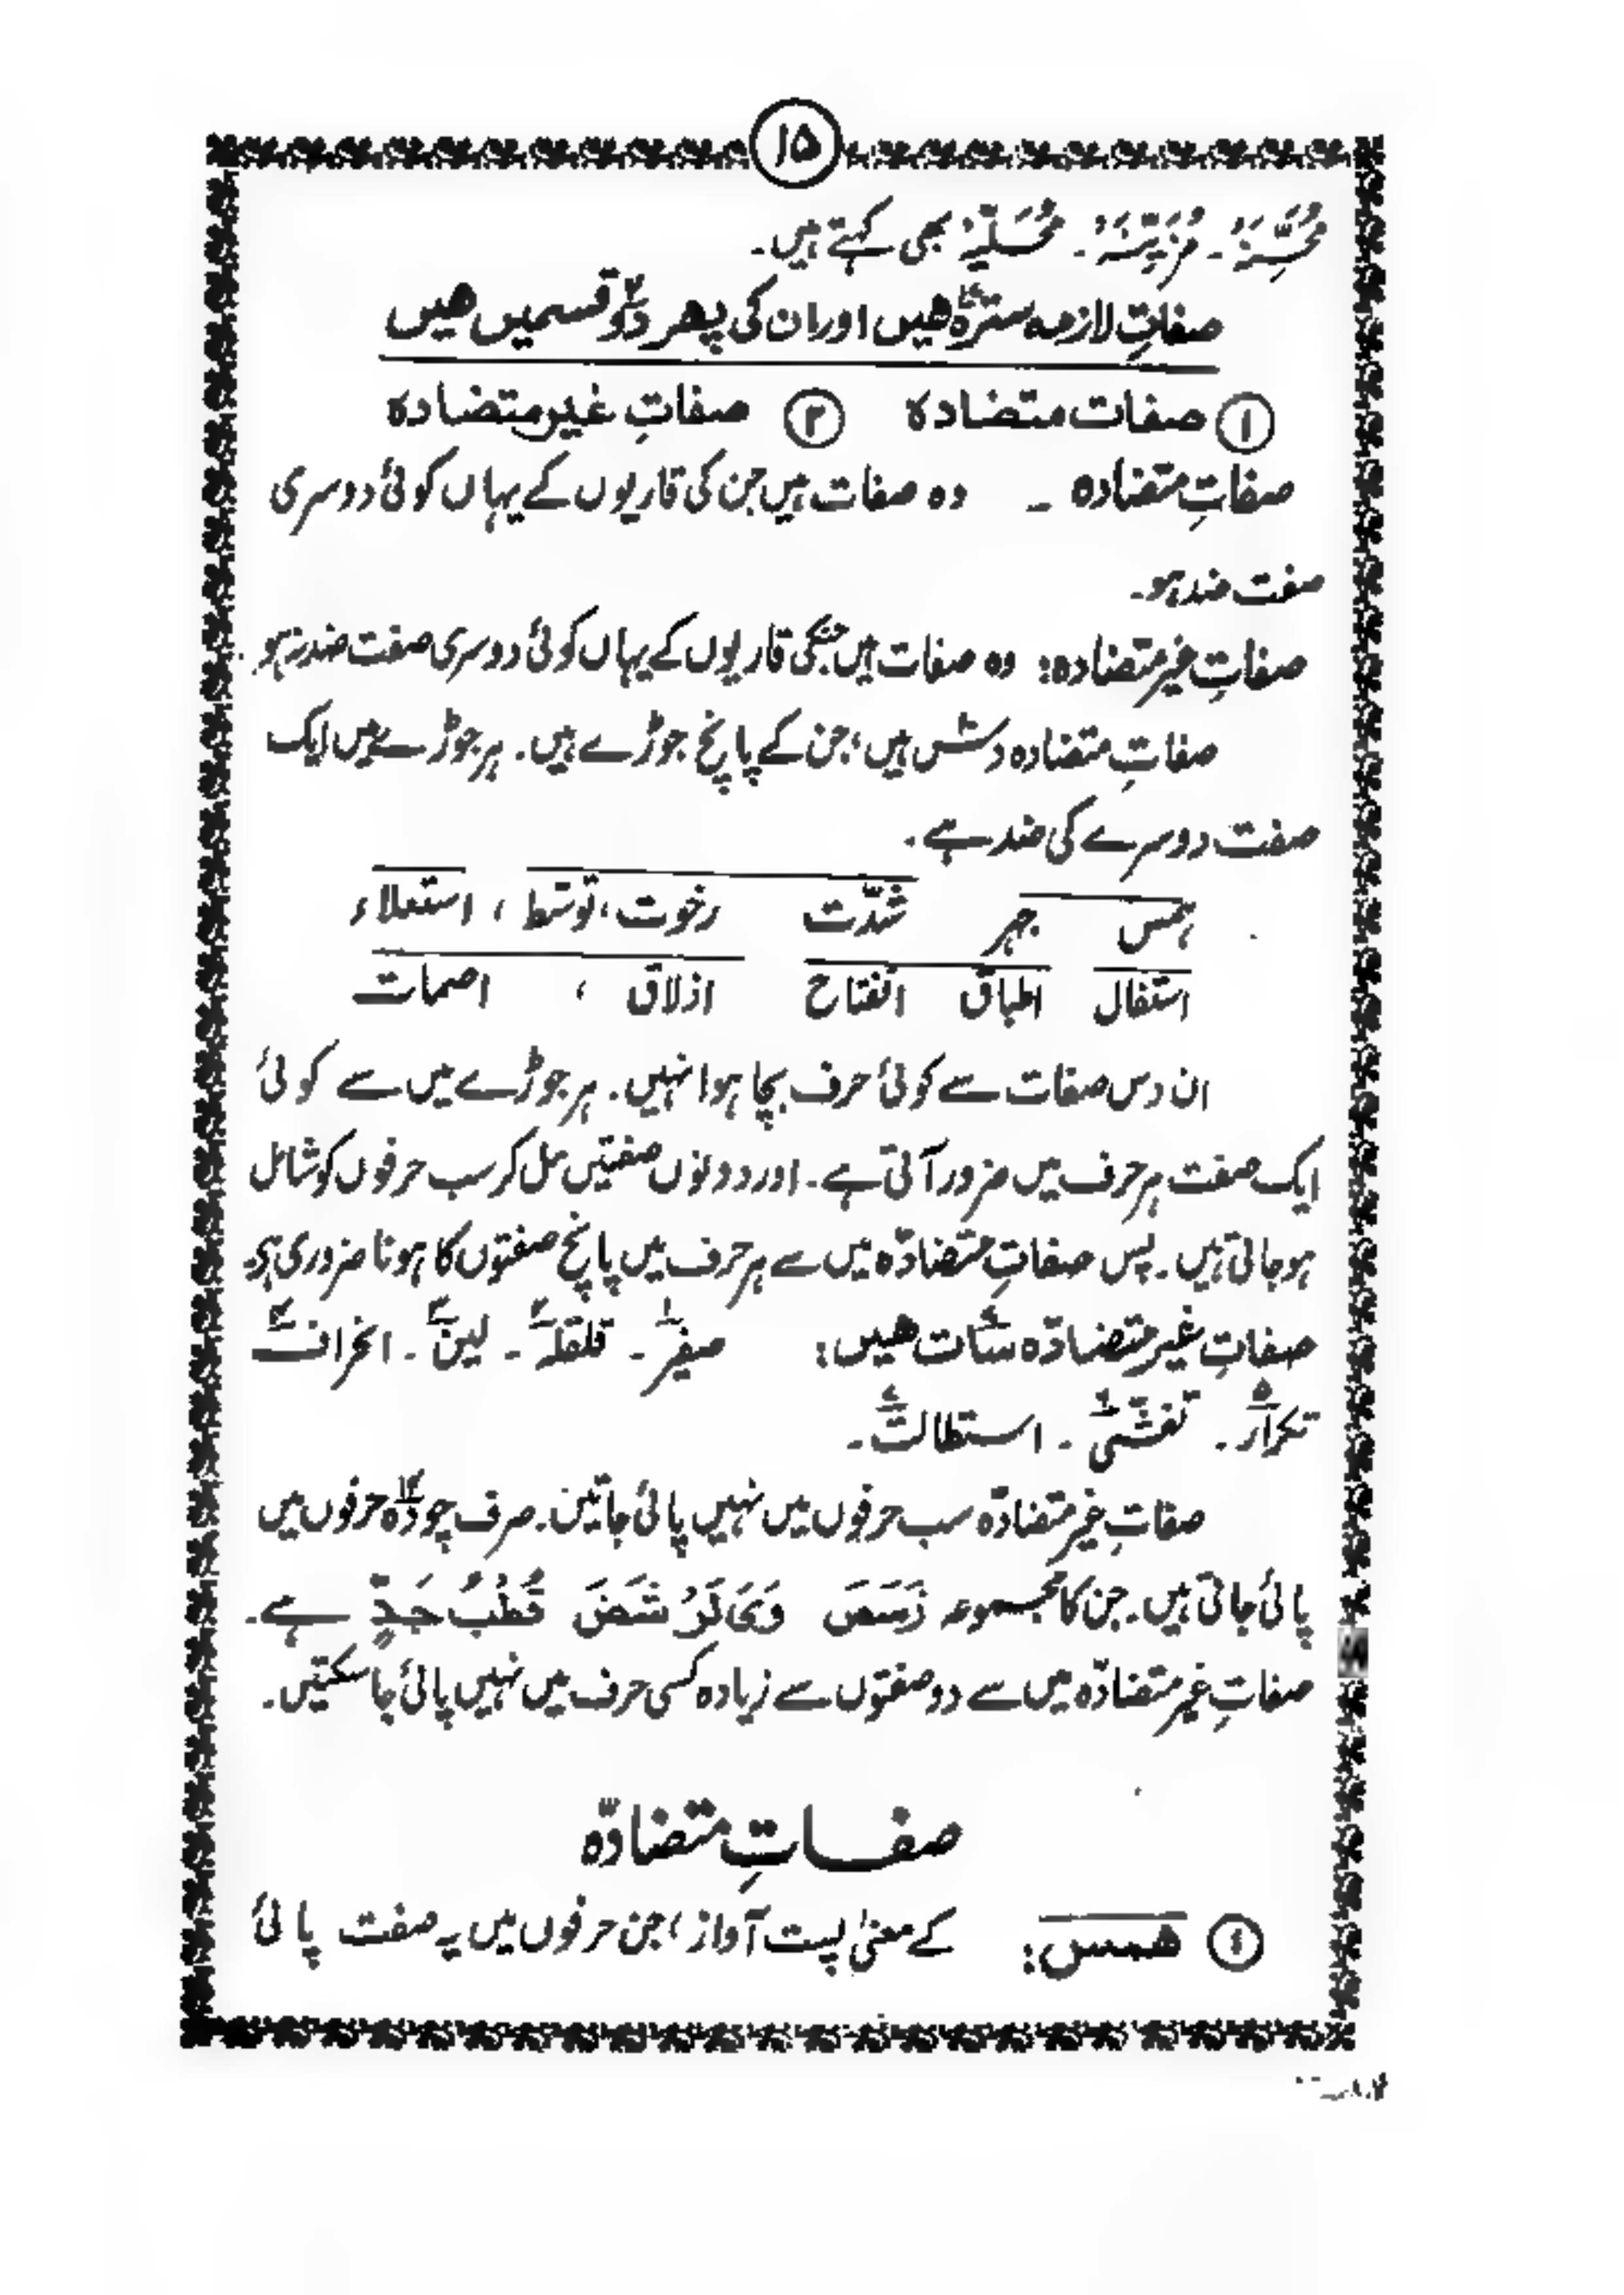 ۱۵
مُحَسِّنَہ۔ مُزَیِّنَہ۔ مُحَلِّیَہ بھی کہتے ہیں۔
صفاتِ لازمہ سترہ ھیں اور ان کی پھر دو قسمیں ھیں
① صفات متضادہ ② صفاتِ غیر متضادہ
صفاتِ متضادہ ۔ وہ صفات ہیں جن کی قاریوں کے یہاں کوئی دوسری
صفت ضد ہو۔
صفاتِ غیر متضادہ: وہ صفات ہیں جنکی قاریوں کے یہاں کوئی دوسری صفت ضد نہ ہو۔
صفاتِ متضادہ دس ہیں، جن کے پانچ جوڑے ہیں۔ ہر جوڑے میں ایک
صفت دوسرے کی ضد ہے۔
ہمس جہر شدّت رخوت، توسّط، استعلاء
استفال اطباق انفتاح اذلاق ، اصمات
ان دس صفات سے کوئی حرف بچا ہوا نہیں۔ ہر جوڑے میں سے کوئی
ایک صفت ہر حرف میں ضرور آتی ہے۔ اور دونوں صفتیں مل کر سب حرفوں کو شامل
ہو جاتی ہیں۔ پس صفاتِ متضادّہ میں سے ہر حرف میں پانچ صفتوں کا ہونا ضروری ہے۔
صفاتِ غیر متضادّہ سات ھیں: صفیر۱۔ قلقلہ۲۔ لین۳۔ انحراف۴
تکرار۵۔ تفشّی۶۔ استطالت۷۔
صفاتِ غیر متضادّہ سب حرفوں میں نہیں پائی جاتیں۔ صرف چودہ۱۴ حرفوں میں
پائی جاتی ہیں۔ جن کا مجموعہ زَسَصَ وَیَ لَرُ شَضَ قُطْبُ جَدٍّ ہے۔
صفاتِ غیر متضادّہ میں سے دو صفتوں سے زیادہ کسی حرف میں نہیں پائی جا سکتیں۔
صفاتِ متضادّہ
① ھمس: کے معنیٰ پست آواز، جن حرفوں میں یہ صفت پائی